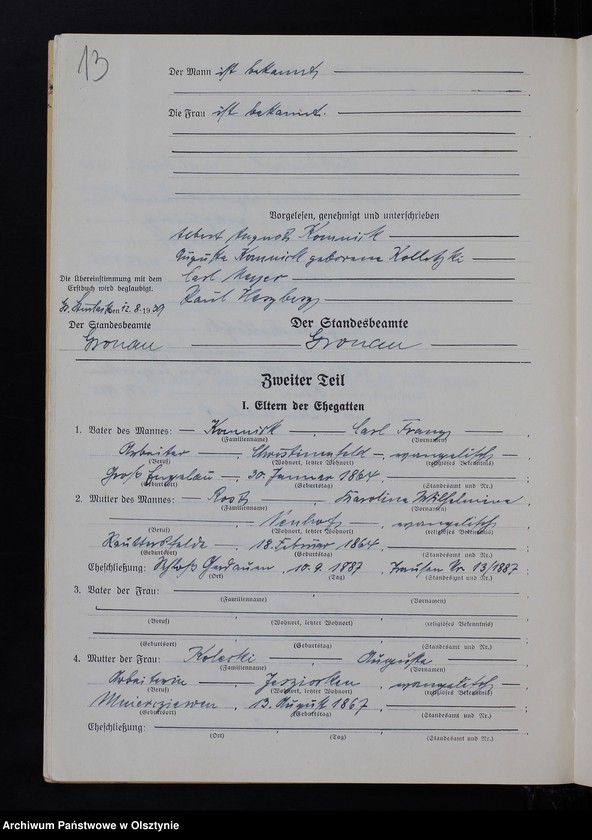 13
Der Mann ist bekannt,
Die Frau ist bekannt.
Vorgelesen, genehmigt und unterschrieben
Albert August Komnick
Auguste Komnick geborene
Carl Meyer
Paul Herzberg
Die Übereinstimmung mit dem
Erstbuch wird beglaubigt.
Gr. den 12.8.1939
Der Standesbeamte
Gronau
Der Standesbeamte
Gronau
Zweiter Teil
I. Eltern der Ehegatten
1. Vater des Mannes: — Komnick — , Carl Franz —
(Familienname) (Vornamen)
Arbeiter — , Christinenfeld — , evangelisch — ,
(Beruf) (Wohnort, letzter Wohnort) (religiöses Bekenntnis)
Groß Engelau — , 30. Januar 1864 , ;
(Geburtsort) (Geburtstag) (Standesamt und Nr.)
2. Mutter des Mannes: — , Karoline Wilhelmine ,
(Familienname) (Vornamen)
— Neuhof — , evangelisch — ,
(Beruf) (Wohnort, letzter Wohnort) (religiöses Bekenntnis)
— , 18. Februar 1864 , ;
(Geburtsort) (Geburtstag) (Standesamt und Nr.)
Eheschließung: Schloß Gerdauen , 10. 9. 1887 , Trausen Nr. 13/1887 ;
(Ort) (Tag) (Standesamt und Nr.)
3. Vater der Frau:
(Familienname) (Vornamen)
(Beruf) (Wohnort, letzter Wohnort) (religiöses Bekenntnis)
(Geburtsort) (Geburtstag) (Standesamt und Nr.)
4. Mutter der Frau: , Auguste —
(Familienname) (Vornamen)
Arbeiterin — , Jesziorken — , evangelisch ,
(Beruf) (Wohnort, letzter Wohnort) (religiöses Bekenntnis)
, 13. August 1867 , ;
(Geburtsort) (Geburtstag) (Standesamt und Nr.)
Eheschließung:
(Ort) (Tag) (Standesamt und Nr.)
Archiwum Państwowe w Olsztynie